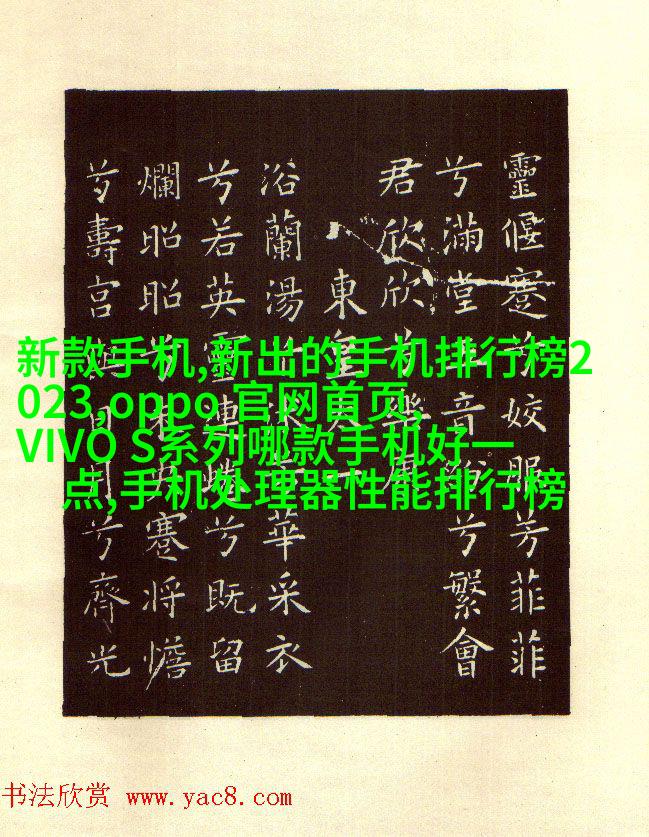 靈偃蹇兮姣服芳菲菲
兮滿堂五音紛兮繁會
君欣欣兮樂康
東皇太一
浴蘭湯兮沐芳華采衣
兮若英靈連蜷兮既留
爛昭昭兮未央蹇將憺
兮壽宮與日月兮齊光
新款手机,新出的手机排行榜2
023,oppo 官网首页,
VIVO S系列哪款手机好一
点,手机处理器性能排行榜
书法欣赏 www.yac8.com